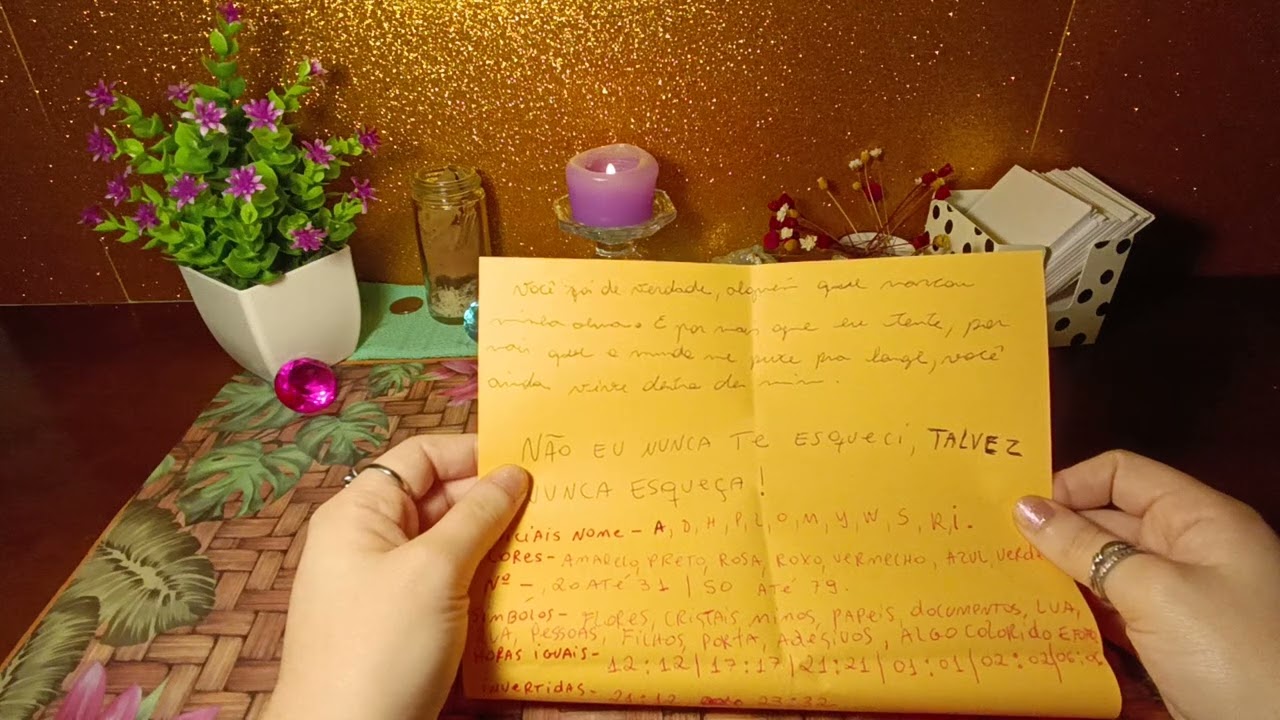 Você foi de verdade, alguém que marcou
minha alma. E por mais que eu tente, por
mais que o mundo me puxe pra longe, você
ainda vive dentro de mim.
NÃO EU NUNCA TE ESQUECI, TALVEZ
NUNCA ESQUEÇA!
ICIAIS NOME - A, D, H, P, L, O, M, Y, W, S, R, i.
CORES - AMARELO, PRETO, ROSA, ROXO, VERMELHO, AZUL, VERDE
Nº - 20 ATÉ 31 | 50 ATÉ 79.
SÍMBOLOS - FLORES, CRISTAIS, MIMOS, PAPEIS, DOCUMENTOS, LUA,
PESSOAS, FILHOS, PORTA, ADESIVOS, ALGO COLORIDO E
HORAS IGUAIS - 12:12 | 17:17 | 21:21 | 01:01 | 02:02 | 06:06
INVERTIDAS - 21:12 23:32